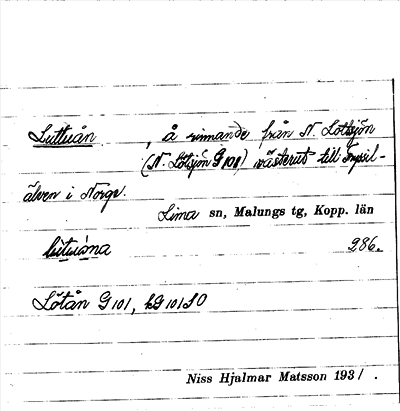 Lutuån , å rinnande från N. Lötsjön
(N. Lötsjön G 101) västerut till Trysil-
älven i Norge.
Lima sn, Malungs tg, Kopp. län
lùtuåna 286.
Lötån G 101, kG 101 SO
Niss Hjalmar Matsson 193/ .